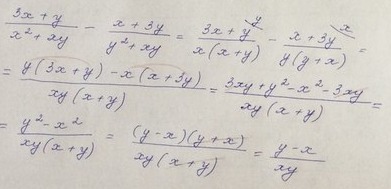 (3x + y)/(x² + xy) - (x + 3y)/(y² + xy) = (3x + y)/(x(x+y)) \ y - (x + 3y)/(y(y+x)) \ x =
= (y(3x+y) - x(x+3y))/(xy(x+y)) = (3xy + y² - x² - 3xy)/(xy(x+y)) =
= (y² - x²)/(xy(x+y)) = ((y-x)(y+x))/(xy(x+y)) = (y-x)/(xy)